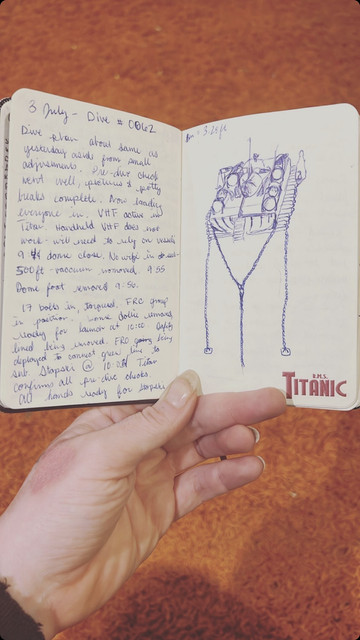 3 July - Dive # 0062
Dive plan about same as
yesterday aside from small
adjustments. Pre-dive check
went well, pictures & potty
breaks complete. Now loading
everyone in. VHF active in
Titan. Handheld VHF does not
work - will need to rely on
9:44 dome close. No
500ft - vacuum removed. 9:55
Dome foot removed 9:56.
17 bolts in, torqued. FRC group
in position. removed,
ready for launch at 10:00
lines being removed. FRC being
deployed to connect green line to
sub. Stopses @ Titan
confirms all pre dive checks.
All hands ready for
= 3.25ft
R.M.S.
TITANIC